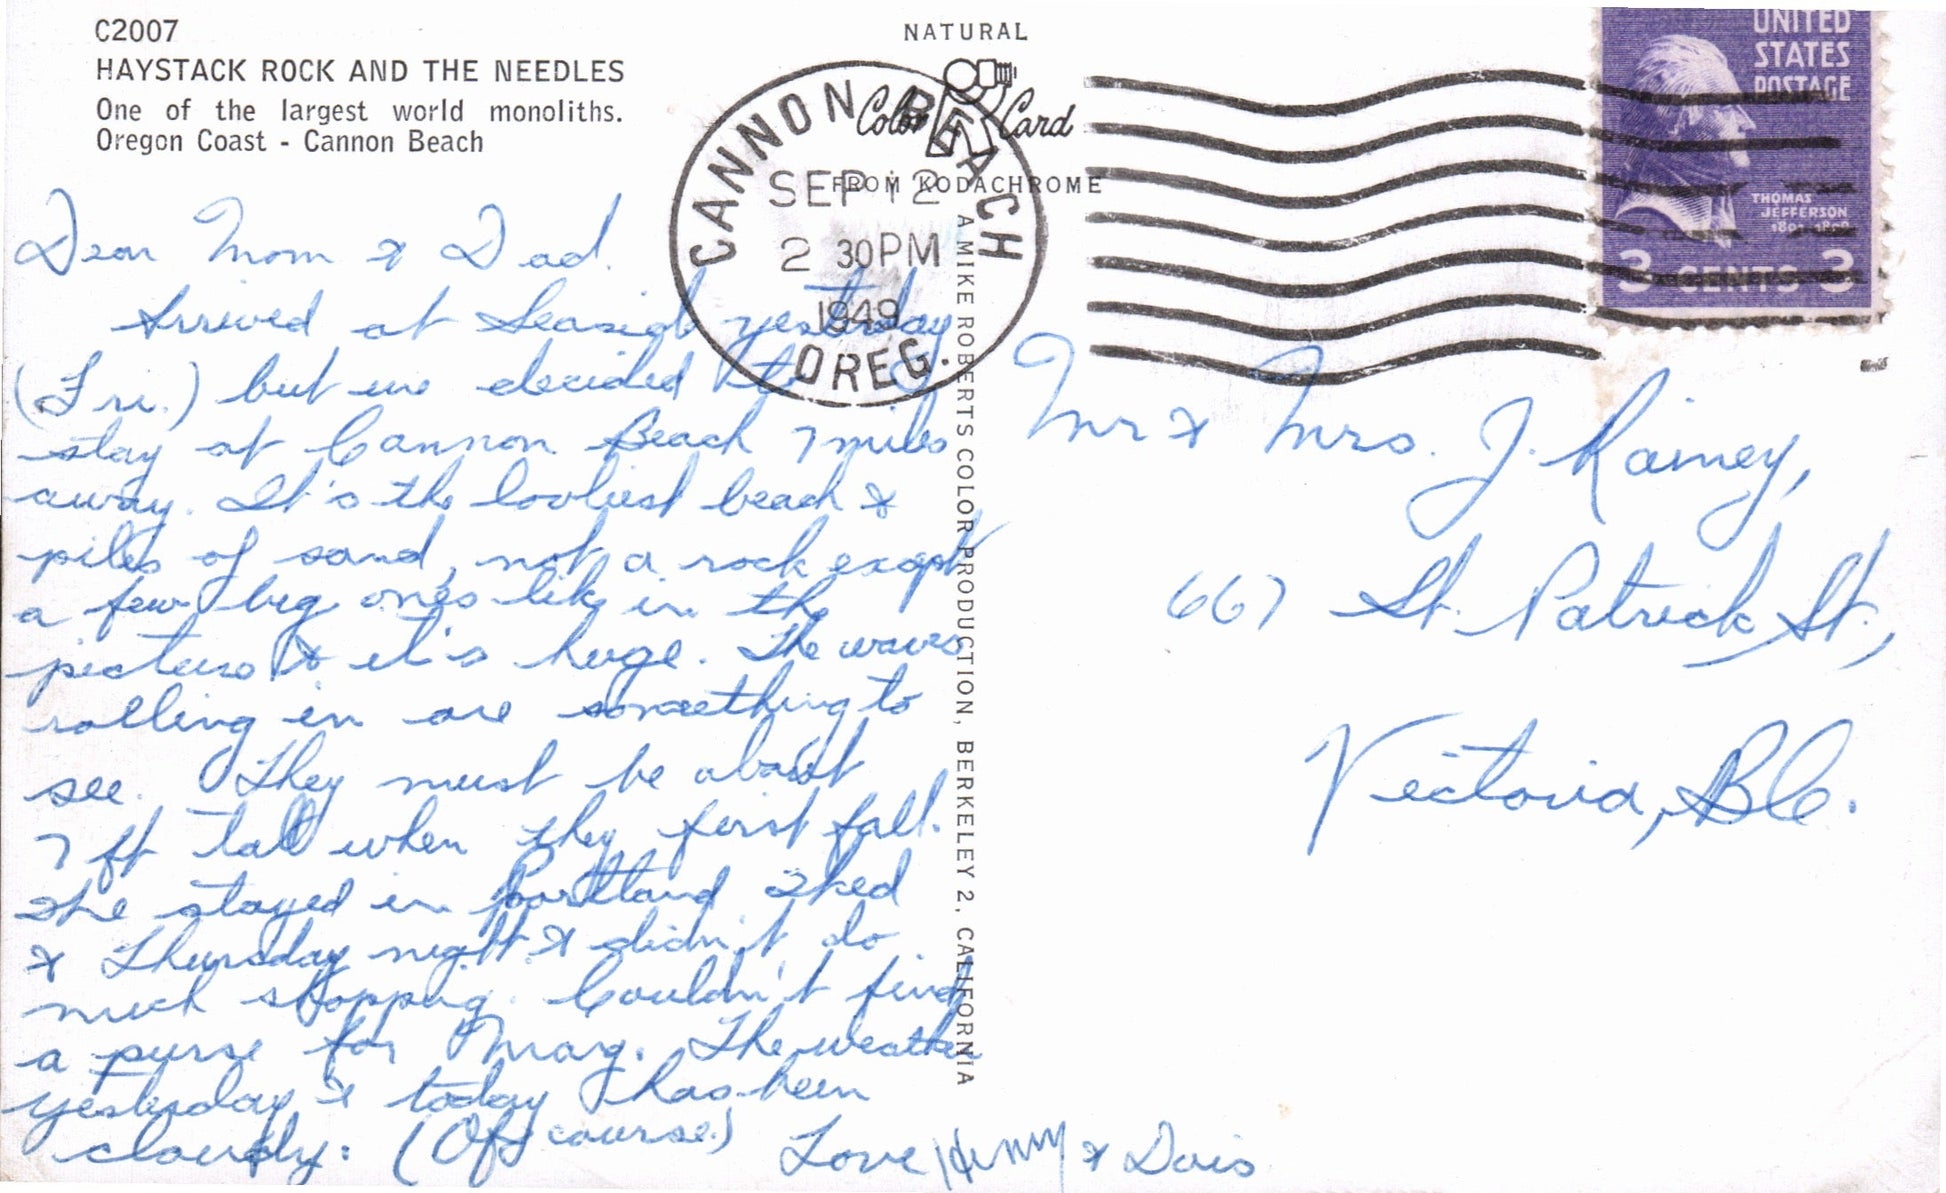 C2007
HAYSTACK ROCK AND THE NEEDLES
One of the largest world monoliths.
Oregon Coast - Cannon Beach
NATURAL
Color Card
FROM KODACHROME
CANNON BEACH
SEP 12
2 30PM
1949
OREG.
UNITED
STATES
POSTAGE
THOMAS
JEFFERSON
3 CENTS 3
A MIKE ROBERTS COLOR PRODUCTION, BERKELEY 2, CALIFORNIA
Dear Mom & Dad.
Arrived at Seaside yesterday
(Fri.) but we decided to
stay at Cannon Beach 7 miles
away. It's the lovliest beach &
piles of sand, not a rock except
a few big ones like in the
picture & it is huge. The waves
rolling in are something to
see. They must be about
7 ft tall when they first fall.
We stayed in Portland Wed
& Thursday night & didn't do
much shopping. Couldn't find
a purse for Marg. The weather
yesterday & today has been
cloudy. (Of course.)
Love Henry & Doris
Mr & Mrs. J. Rainey,
667 St. Patrick St.,
Victoria, B.C.